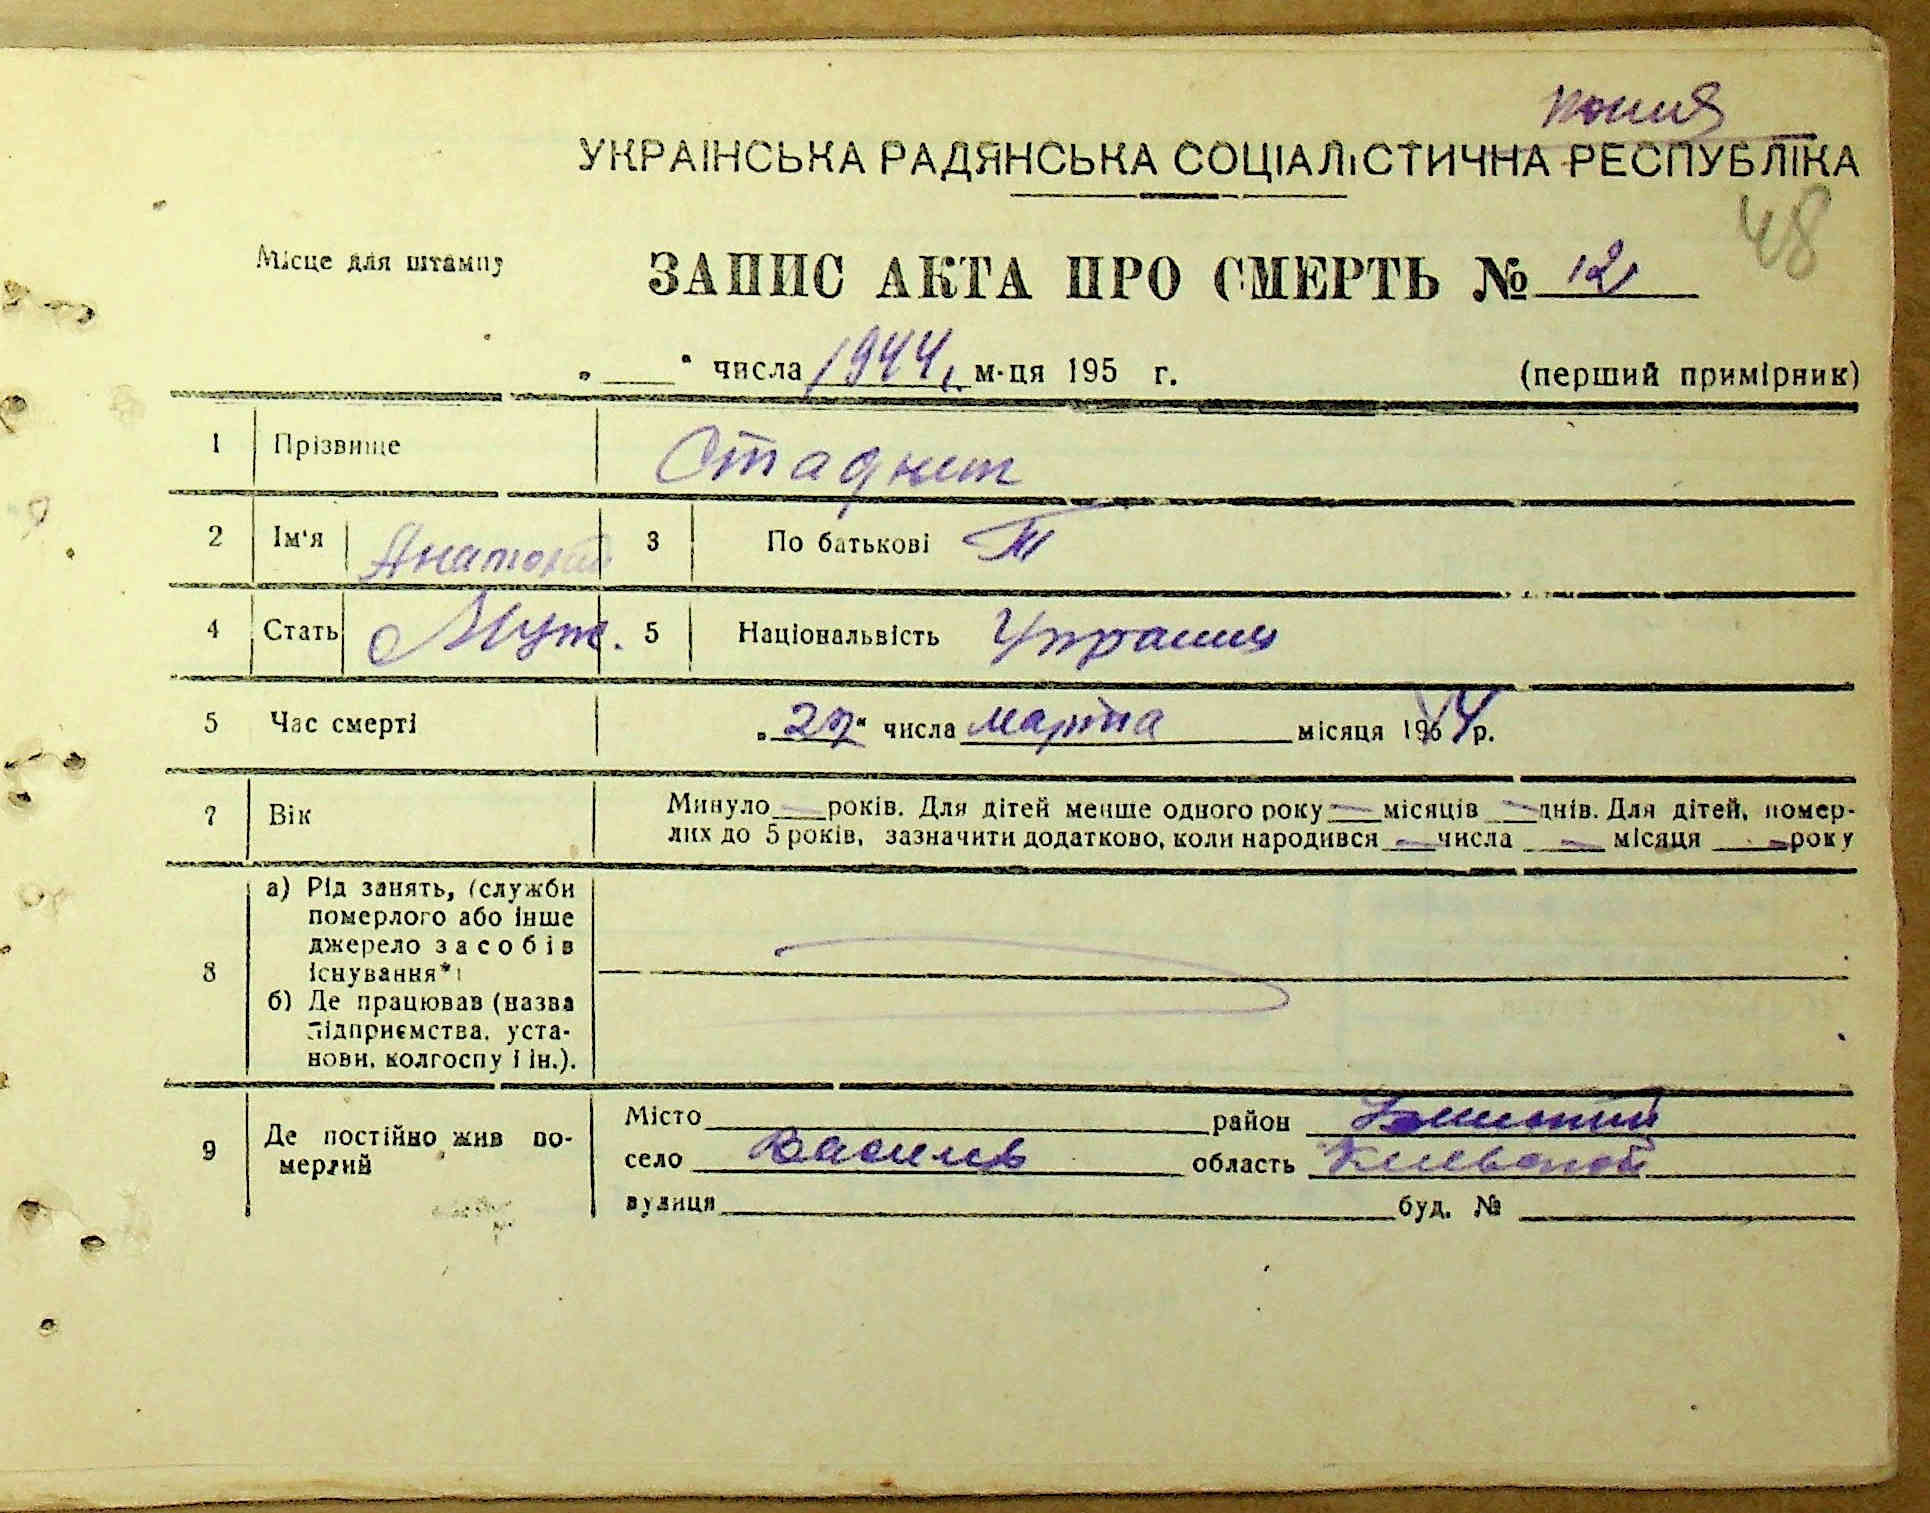 копия
УКРАІНСЬКА РАДЯНСЬКА СОЦІАЛІСТИЧНА РЕСПУБЛІКА
48
Місце для штампу
ЗАПИС АКТА ПРО СМЕРТЬ № 12
„ “ числа 1944 м-ця 195 г. (перший примірник)
1 Прізвище
2 Ім'я Анатолий 3 По батькові Т
4 Стать Муж. 5 Національвість
5 Час смерті „27“ числа марта місяця 1944 р.
7 Вік Минуло — років. Для дітей менше одного року — місяців — днів. Для дітей, помер-
лих до 5 років, зазначити додатково, коли народився — числа — місяця — року
8 а) Рід занять, (служби
померлого або інше
джерело засобів
існування*)
б) Де працював (назва
підприємства, уста-
нови, колгоспу і ін.).
9 Де постійно жив по-
мерлий
Місто район
село Василев область Киевской
вулиця буд. №